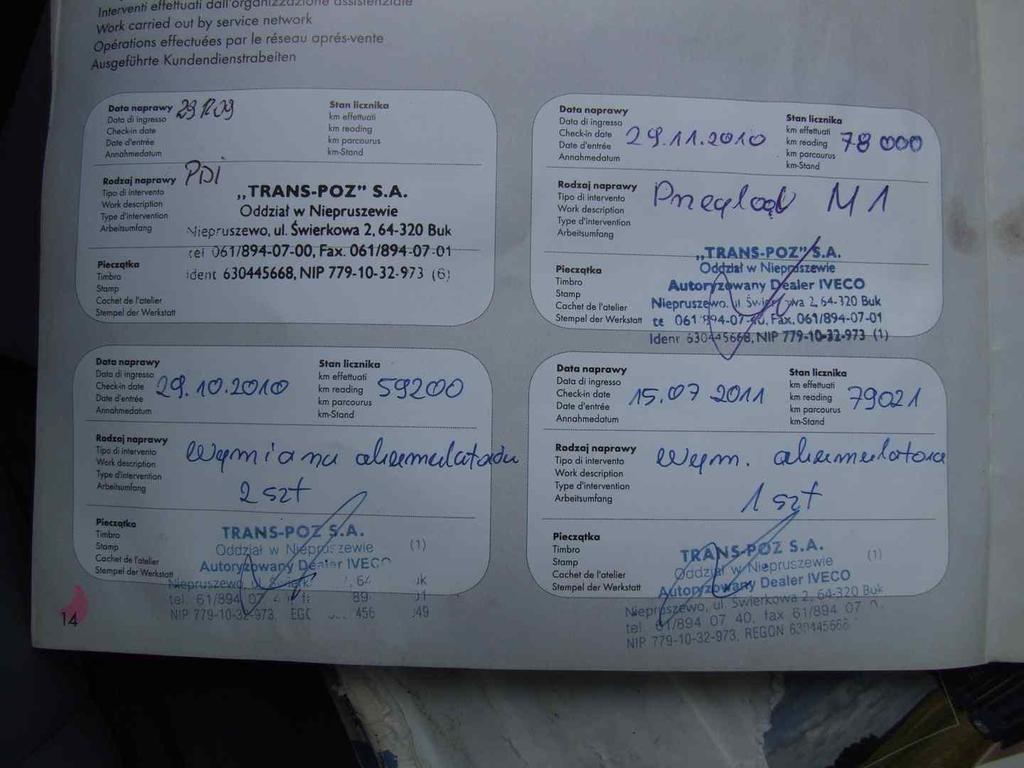 Interventi effettuati dall'organizzazione assistenziale
Work carried out by service network
Opérations effectuées par le réseau aprés-vente
Ausgeführte Kundendienstrabeiten
Data naprawy
Data di ingresso
Check-in date
Date d'entrée
Annahmedatum
Stan licznika
km effettuati
km reading
km parcourus
km-Stand
Rodzaj naprawy PDI
Tipo di intervento
Work description
Type d'intervention
Arbeitsumfang
„TRANS-POZ" S.A.
Oddział w Niepruszewie
Niepruszewo, ul. Świerkowa 2, 64-320 Buk
tel 061/894-07-00, Fax. 061/894-07-01
ident 630445668, NIP 779-10-32-973 (6)
Pieczątka
Timbro
Stamp
Cachet de l'atelier
Stempel der Werkstatt
Data naprawy
Data di ingresso
Check-in date 29.11.2010
Date d'entrée
Annahmedatum
Stan licznika
km effettuati
km reading 78 000
km parcourus
km-Stand
Rodzaj naprawy Przegląd M1
Tipo di intervento
Work description
Type d'intervention
Arbeitsumfang
„TRANS-POZ" S.A.
Oddział w Niepruszewie
Autoryzowany Dealer IVECO
Niepruszewo, 2, 64-320 Buk
Fax. 061/894-07-01
NIP 779-10-32-973 (1)
Pieczątka
Timbro
Stamp
Cachet de l'atelier
Stempel der Werkstatt
Data naprawy
Data di ingresso
Check-in date 29.10.2010
Date d'entrée
Annahmedatum
Stan licznika
km effettuati
km reading 59200
km parcourus
km-Stand
Rodzaj naprawy
Tipo di intervento Wymiana akumulatorów
Work description
Type d'intervention
Arbeitsumfang 2 szt
Pieczątka
Timbro
Stamp
Cachet de l'atelier
Stempel der Werkstatt
TRANS-POZ S.A.
Oddział w Niepruszewie (1)
Autoryzowany Dealer IVECO
Niepruszewo
NIP 779-10-32-973,
Data naprawy
Data di ingresso
Check-in date 15.07 2011
Date d'entrée
Annahmedatum
Stan licznika
km effettuati
km reading 79021
km parcourus
km-Stand
Rodzaj naprawy
Tipo di intervento Wym. akumulatora
Work description
Type d'intervention
Arbeitsumfang 1 szt
Pieczątka
Timbro
Stamp
Cachet de l'atelier
Stempel der Werkstatt
TRANS-POZ S.A.
Oddział w Niepruszewie (1)
Autoryzowany Dealer IVECO
Niepruszewo, ul. Świerkowa 2, 64-320 Buk
tel. 61/894 07 40, fax 61/894 07
NIP 779-10-32-973, REGON 630445668
14